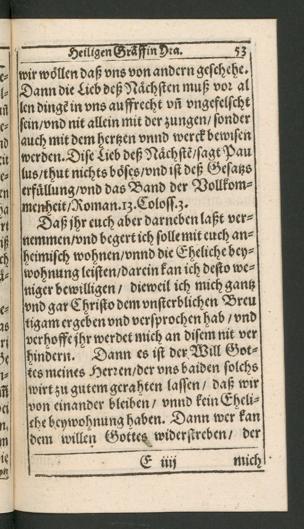 Heiligen Gräffin Yta. 53
wir wöllen daß vns von andern geschehe.
Dann die Lieb deß Nächsten muß vor al
len dingē in vns auffrecht vñ vngefelscht
sein/vnd nit allein mit der zungen/sonder
auch mit dem hertzen vnnd werck bewisen
werden. Dise Lieb deß Nächstē/sagt Pau
lus/thut nichts böses/vnd ist deß Gesatzs
erfüllung/vnd das Band der Vollkom-
menheit/Roman.13.Coloss.3.
Daß jhr euch aber darneben laßt ver-
nemmen/vnd begert ich solle mit euch an-
heimisch wohnen/vnnd die Eheliche bey-
wohnung leisten/darein kan ich desto we-
niger bewilligen/ dieweil ich mich gantz
vnd gar Christo dem vnsterblichen Breu
tigam ergeben vnd versprochen hab/vnd
verhoffe jhr werdet mich an disem nit ver
hindern. Dann es ist der Will Got-
tes meines Herren/der vns baiden solchs
wirt zu gutem gerahten lassen/ daß wir
von einander bleiben/ vnnd kein Eheli-
che beywohnung haben. Dann wer kan
dem willen Gottes widerstreben/ der
E iiij mich